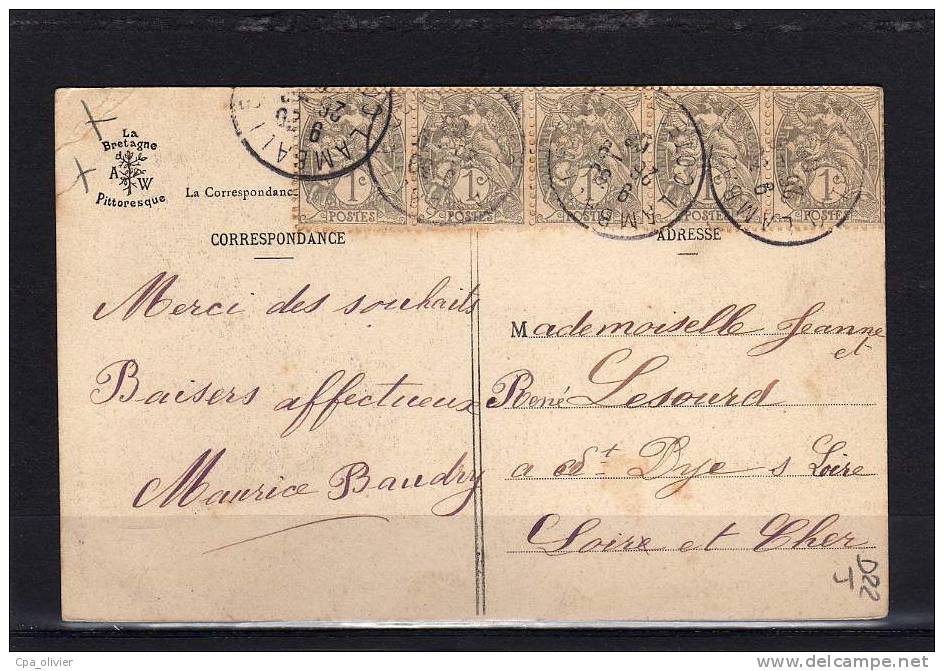 La
Bretagne
A W
Pittoresque
La Correspondance
1c 1c 1c 1c 1c
POSTES POSTES POSTES POSTES POSTES
CORRESPONDANCE
ADRESSE
Merci des souhaits
Baisers affectueux
Maurice Baudry
Mademoiselle Jeanne
et
René Lesourd
a St Dyé s Loire
Loire et Cher
D22
J
Cpa_olivier
www.delcampe.net